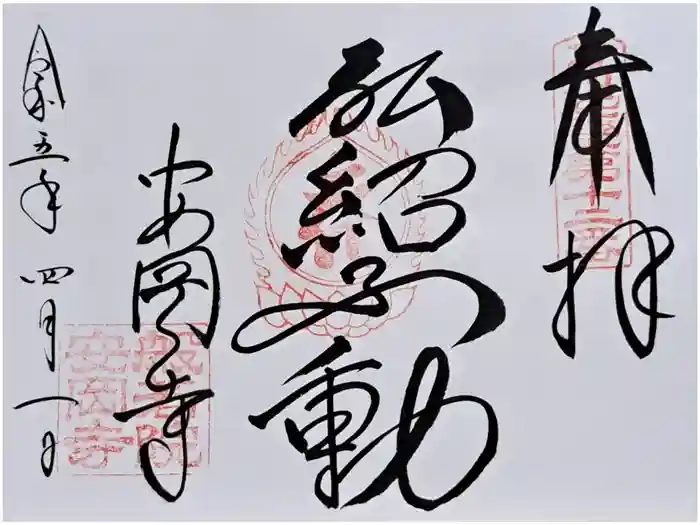 奉拝
弘紹不動
安國寺
令和五年四月一日